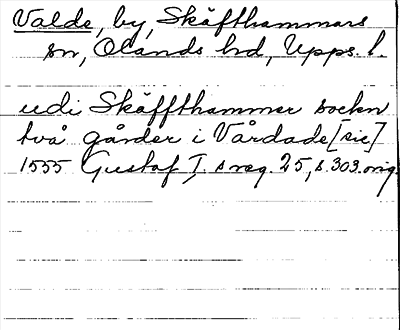 Valde, by, Skäfthammars
sn, Olands hd, Upps. l.
udi Skäffthammer sockn
två gårder i Vårdade [sic]
1555 Gustaf I,s reg. 25, s. 303. orig.